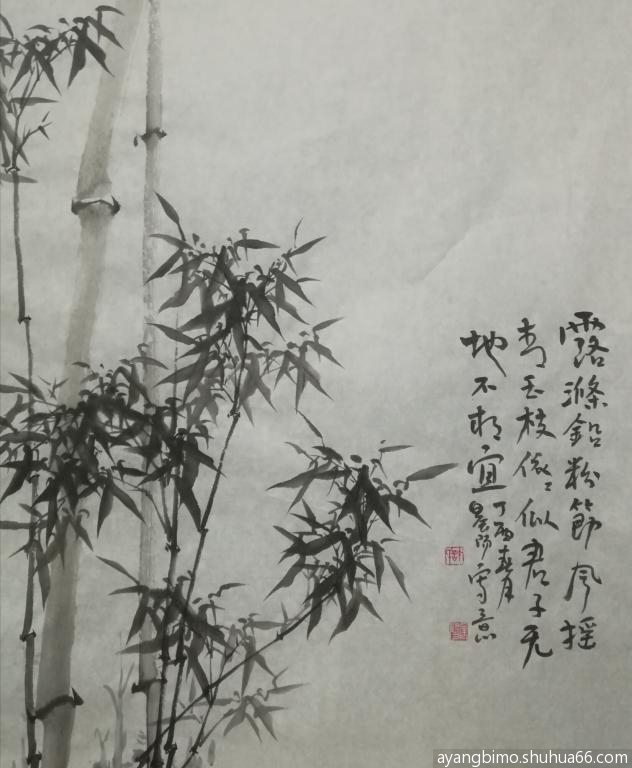 露滌鉛粉節風搖
青玉枝依〻似君子无
地不相宜
丁酉春月
晨陽寫意
ayangbimo.shuhua66.com